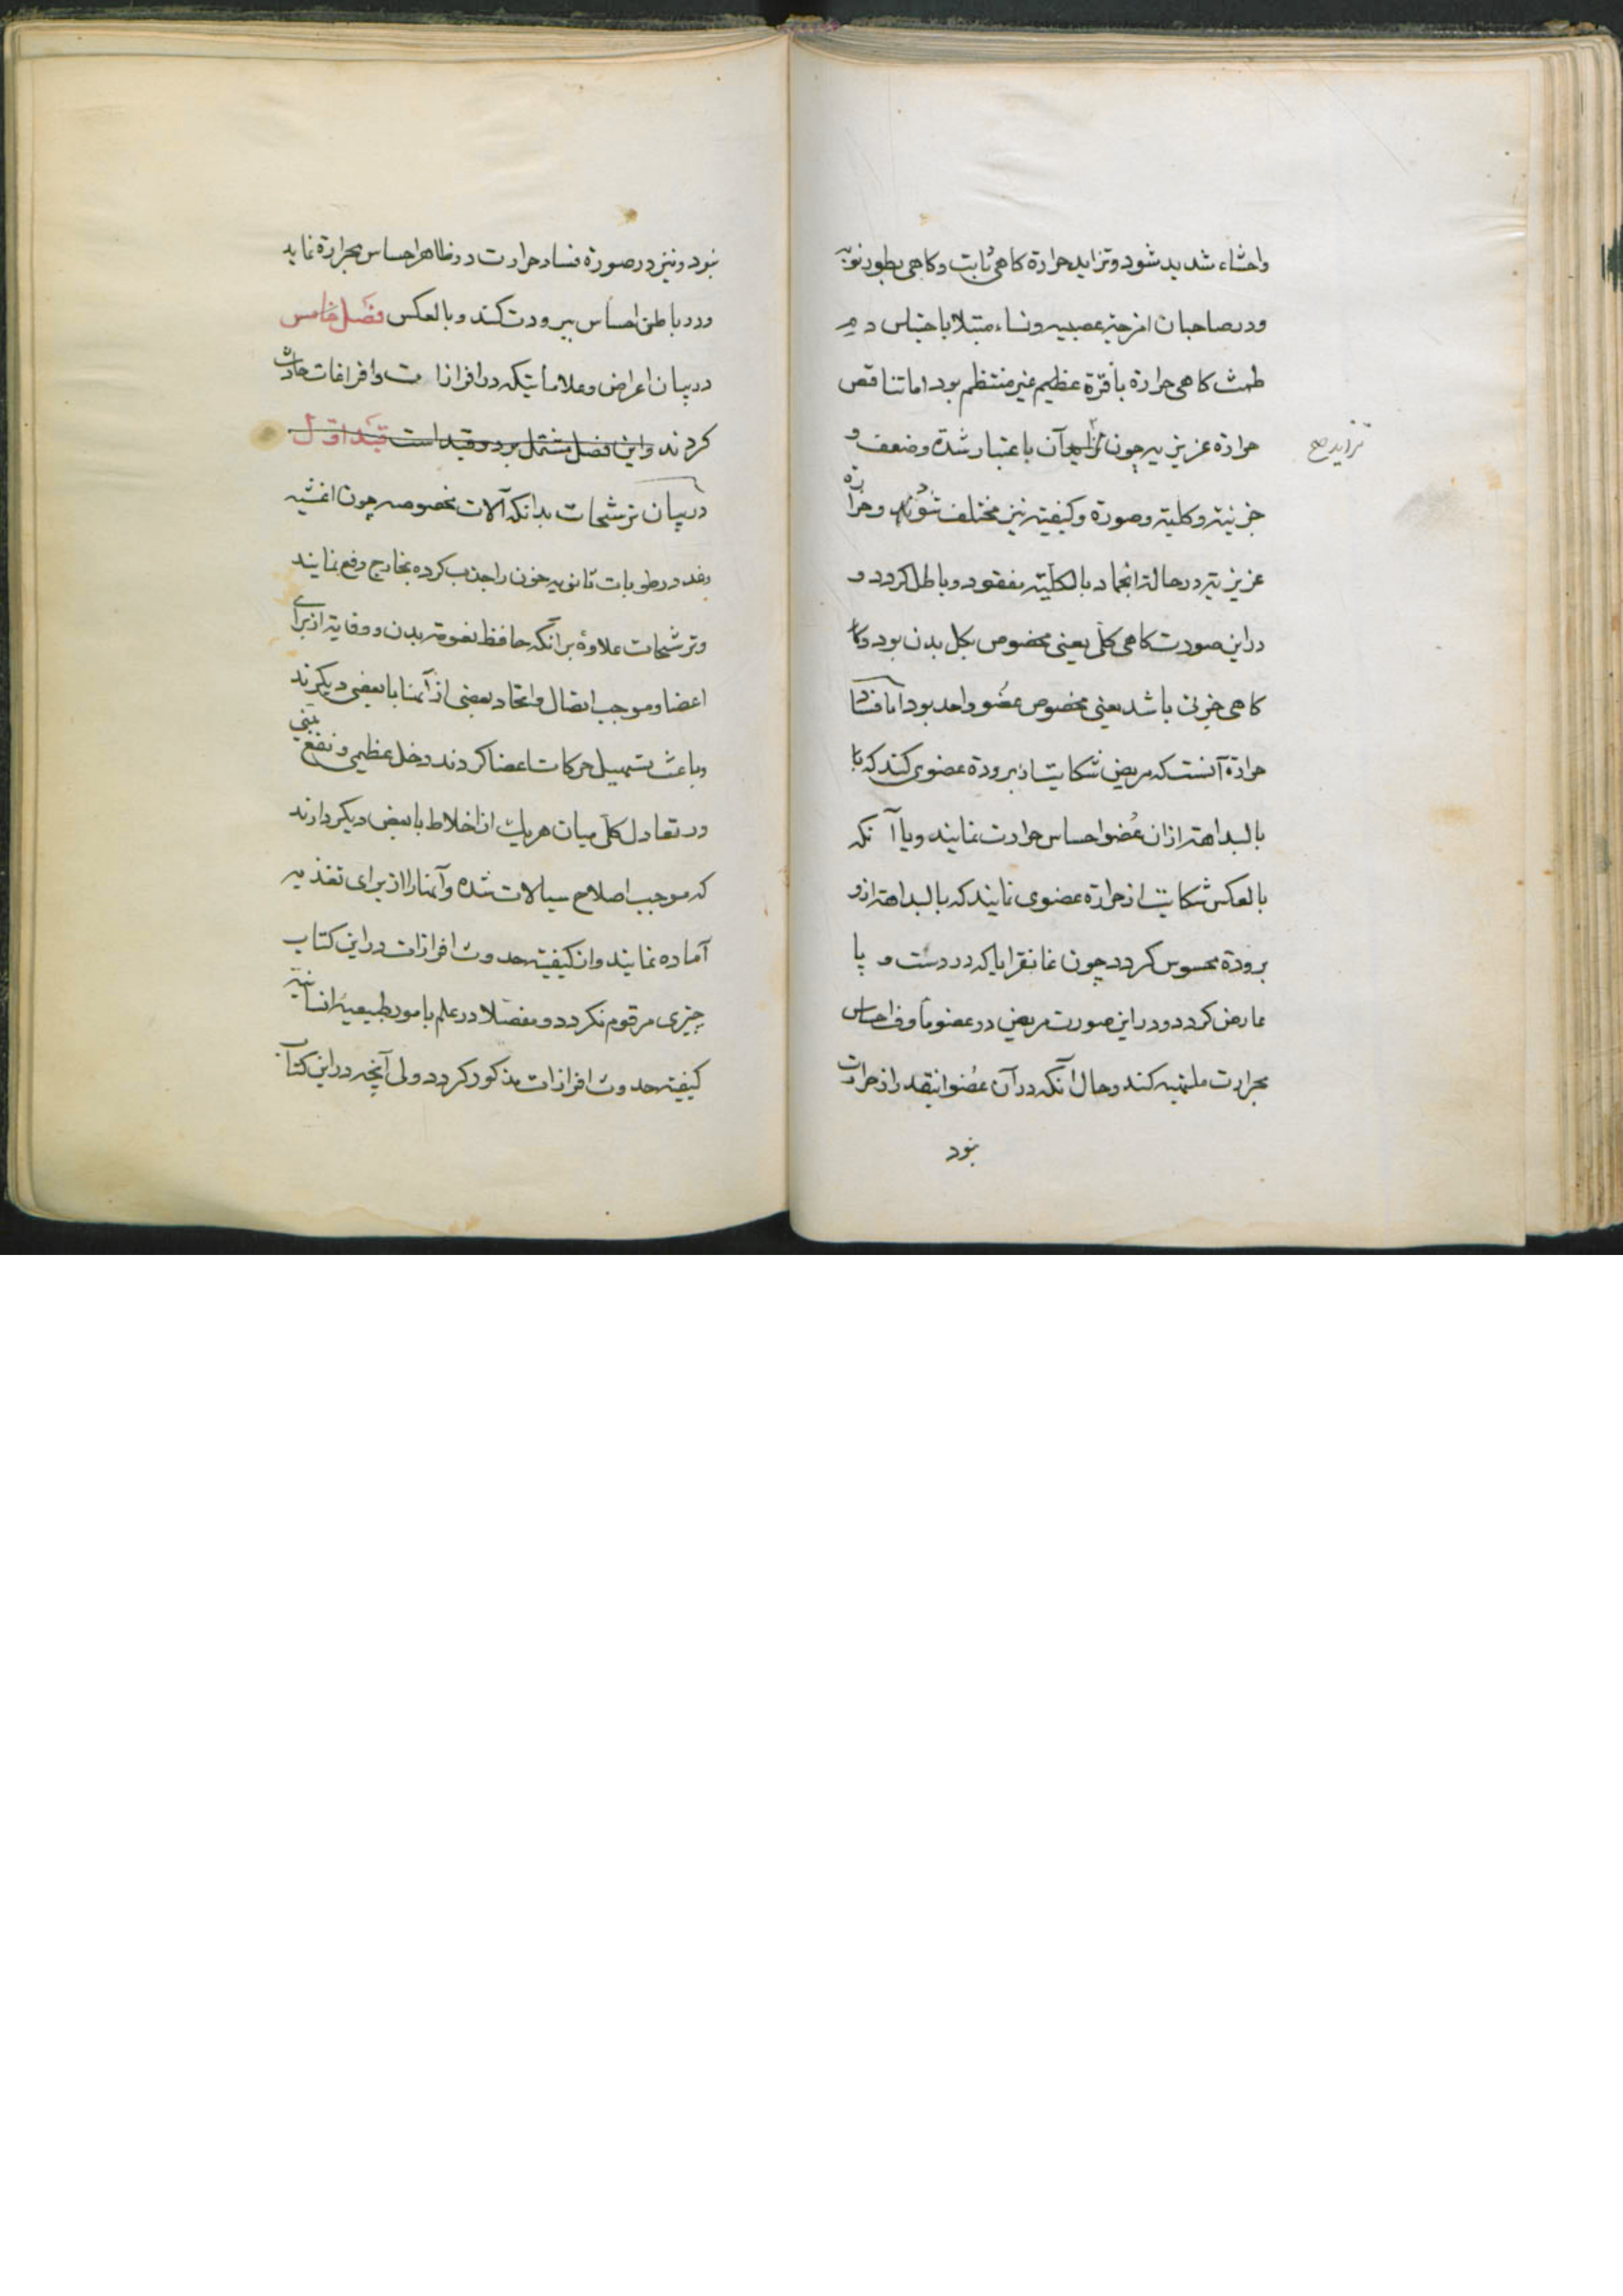 واحشاء شدید شود و تزاید حرارة کاهی ثابت و کاهی بطور نوبه
ودر صاحبان امزجه عصبیه ونساء مبتلا باحتباس دم
طمث کاهی حرارة باقرّة عظیم غیر منتظم بود اما تناقص
حرارة عزیزیه چون تزاید آن باعتبار شدة وضعف و
تزاید صح
جزئیة وکلیة وصورة وکیفیة نیز مختلف شود وحرارة
عزیزیة در حالة انجماد بالکلیة مفقود وباطل کردد و
دراین صورت کاهی کلی یعنی مخصوص بکل بدن بود وکا
کاهی جزئی باشد یعنی مخصوص عضو واحد بود اما فساد
حرارة آنست که مریض شکایت از برودة عضوی کند که با
بالبداهة ازان عُضو احساس حرارت نمایند ویا آنکه
بالعکس شکایت از حرارة عضوی نمایند که بالبداهة ازو
برودة محسوس کردد چون غانقرایا که در دست و پا
عارض کردد ودر این صورت مریض در عضو مأوف احساس
بحرارت ملتهبه کند وحال آنکه در آن عُضو اینقدر از حرارت
نبود
نبود ونیز در صورة فساد حرارت در ظاهر احساس بحرارة نماید
ودر باطن احساس ببرودت کند وبالعکس فصل خامس
در بیان اعراض وعلاماتیکه در افرازات وافراغات حادث
کردند واین فصل مشتمل بر دو قید است قید اوّل
در بیان ترشحات بدانکه آلات مخصوصه چون اغشیه
وغدد رطوبات ثانویه خون را جذب کرده بخارج دفع نمایند
وترشحات علاوه برآنکه حافظ نعومة بدن ووقایة از برای
اعضا وموجب اتصال واتحاد بعضی از آنها با بعضی دیکرند
وباعث تسهیل حرکات اعضا کردند دخل عظیمی ونفع بینی
در تعادل کلی میان هریک از اخلاط با بعض دیکر دارند
که موجب اصلاح سیالات شده وآنها را از برای تغذیه
آماده نمایند واز کیفیة حدوث افرازات در این کتاب
چیزی مرقوم نکردد ومفصّلا در علم بامور طبیعیه انسانیة
کیفیة حدوث افرازات مذکور کردد ولی آنچه در این کتاب